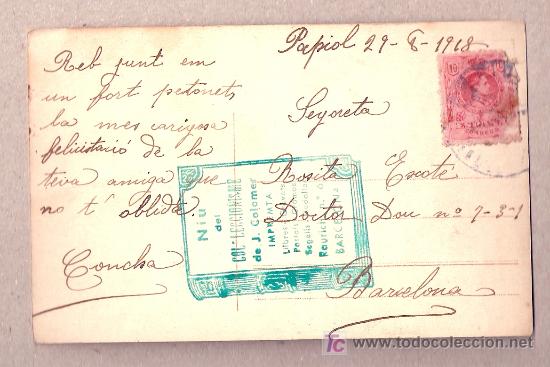 Papiol 29-8-1918
Reb junt em
un fort petonets
la mes carinyosa
felicitació de la
teva amiga que
no t' oblida
Concha
Senyoreta
Rosita Escoté
Doctor Dou nº 7-3-1
Barcelona
Niu
del
COL·LECCIONISME
de J. Colomer
IMPREMTA
BARCELONA
10
todocoleccion
www.todocoleccion.net